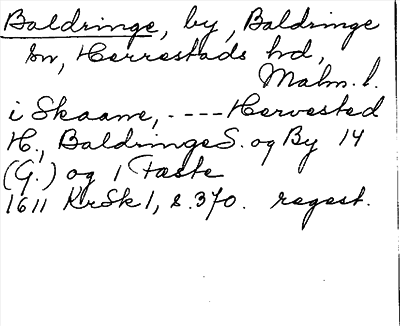 Baldringe, by, Baldringe
sn, Herrestads hd,
Malm. l.
i Skaane, ---- Hervested
H., Baldringe S. og By 14
(G.) og 1 Fæste
1611 KrSk 1, s. 370. regest.